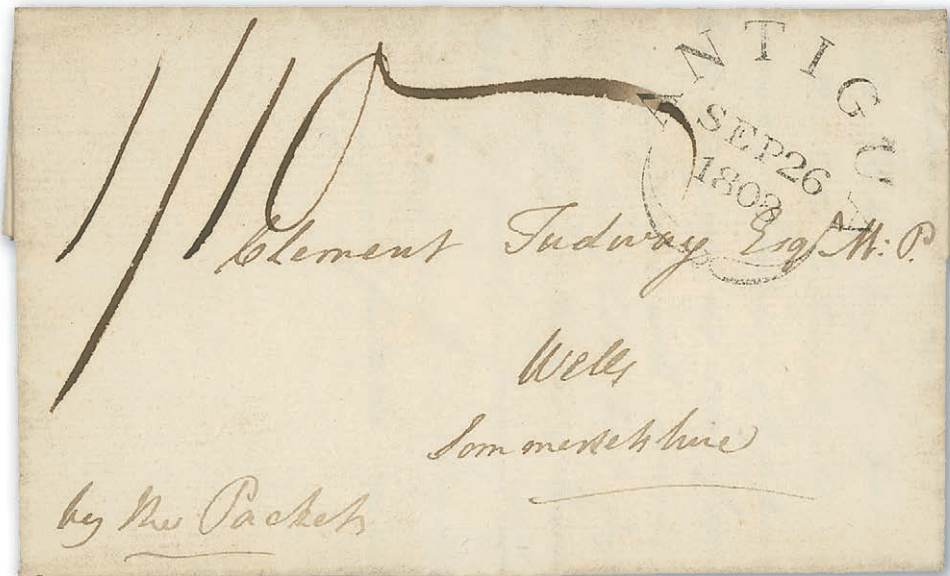 1/10
ANTIGUA
SEP 26
1803
Clement Tudway Esqr. M: P.
Wells
Sommersetshire
by the Packet